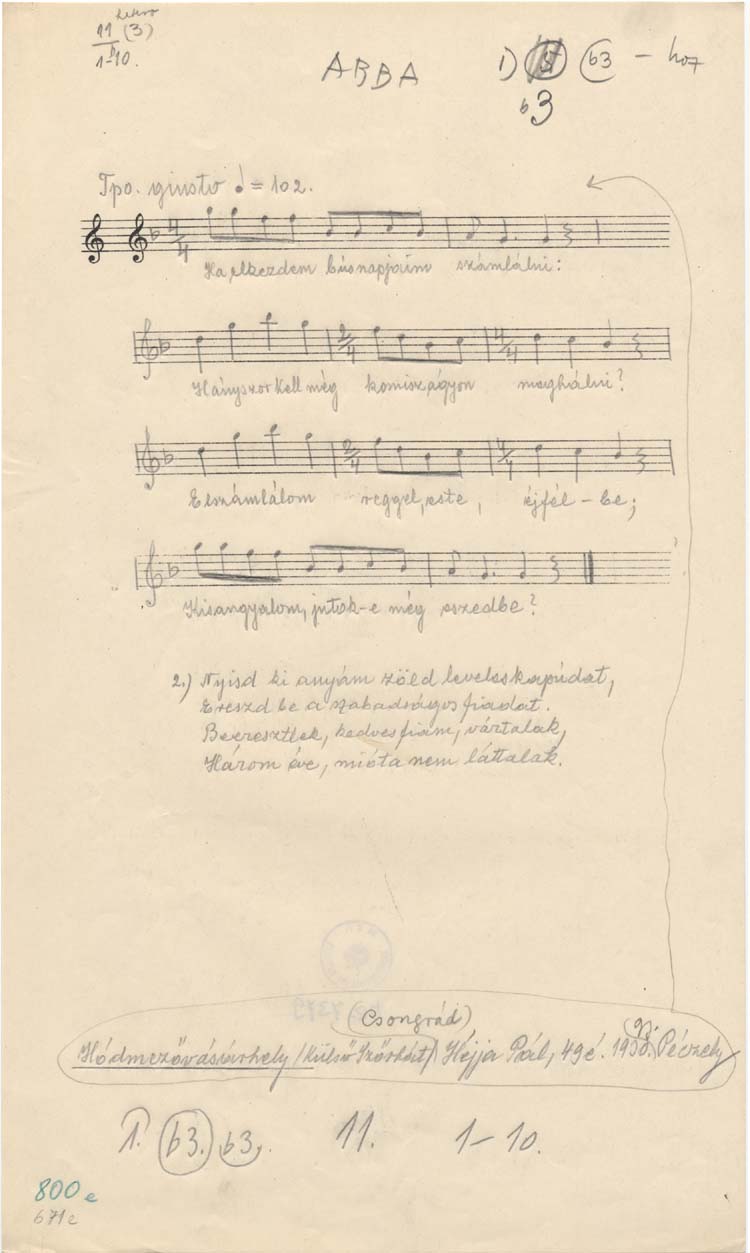 11 (3)
1-10.
ABBA 1) 5 b3 - hoz
b3
Tpo. giusto ♩ = 102.
4/4
Ha elkezdem búsnapjaim számlálni:
2/4 4/4
Hányszor kell még komiszágyon meghálni?
2/4 4/4
Elszámlálom reggel, este, éjfél - be;
Kisangyalom, jutok-e még eszedbe?
2.) Nyisd ki anyám zöld leveles kapúdat,
Ereszd be a szabadságos fiadat.
Beeresztlek, kedves fiam, vártalak,
Három éve, mióta nem láttalak.
(Csongrád)
Hódmezővásárhely (Külső Szőrhát) Héjja Pál, 49 é. 1950. Péczely
1. b3. b3. 11. 1-10.
800 e
671 e